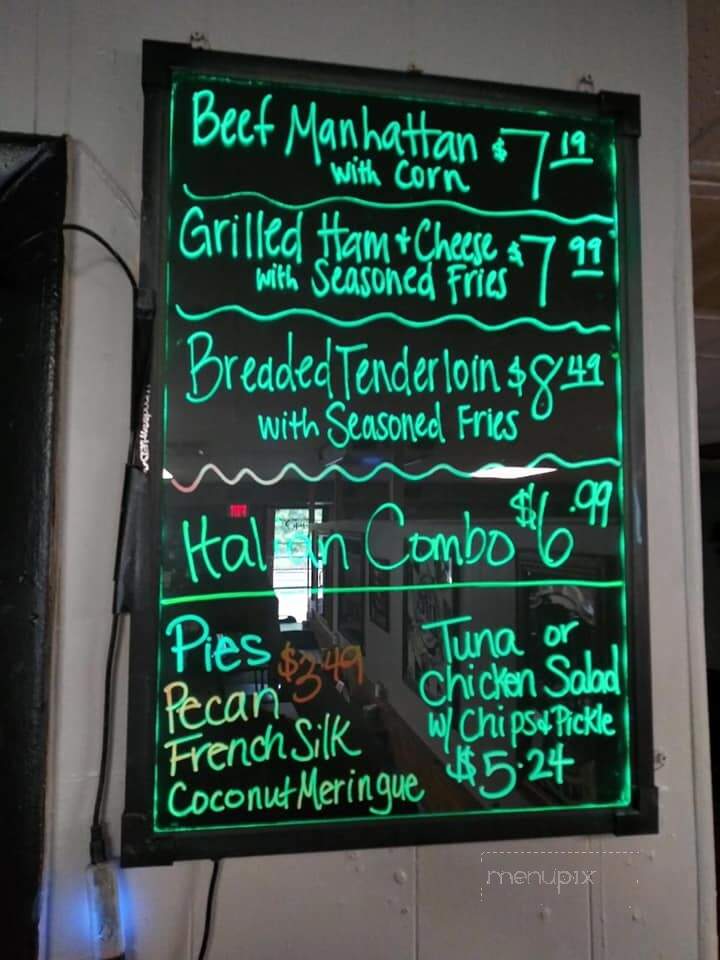 Beef Manhattan $7 19
with Corn
Grilled Ham + Cheese $7 99
with Seasoned Fries
Breaded Tenderloin $8 49
with Seasoned Fries
Italian Combo $6.99
Pies $3.49
Pecan
French Silk
Coconut Meringue
Tuna or
Chicken Salad
w/ Chips + Pickle
$5.24
menupix